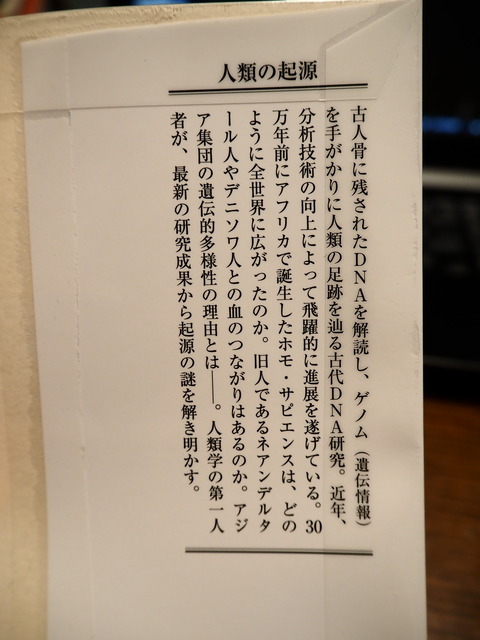 人類の起源
古人骨に残されたDNAを解読し、ゲノム（遺伝情報）
を手がかりに人類の足跡を辿る古代DNA研究。近年、
分析技術の向上によって飛躍的に進展を遂げている。30
万年前にアフリカで誕生したホモ・サピエンスは、どの
ように全世界に広がったのか。旧人であるネアンデルタ
ール人やデニソワ人との血のつながりはあるのか。アジ
ア集団の遺伝的多様性の理由とは――。人類学の第一人
者が、最新の研究成果から起源の謎を解き明かす。